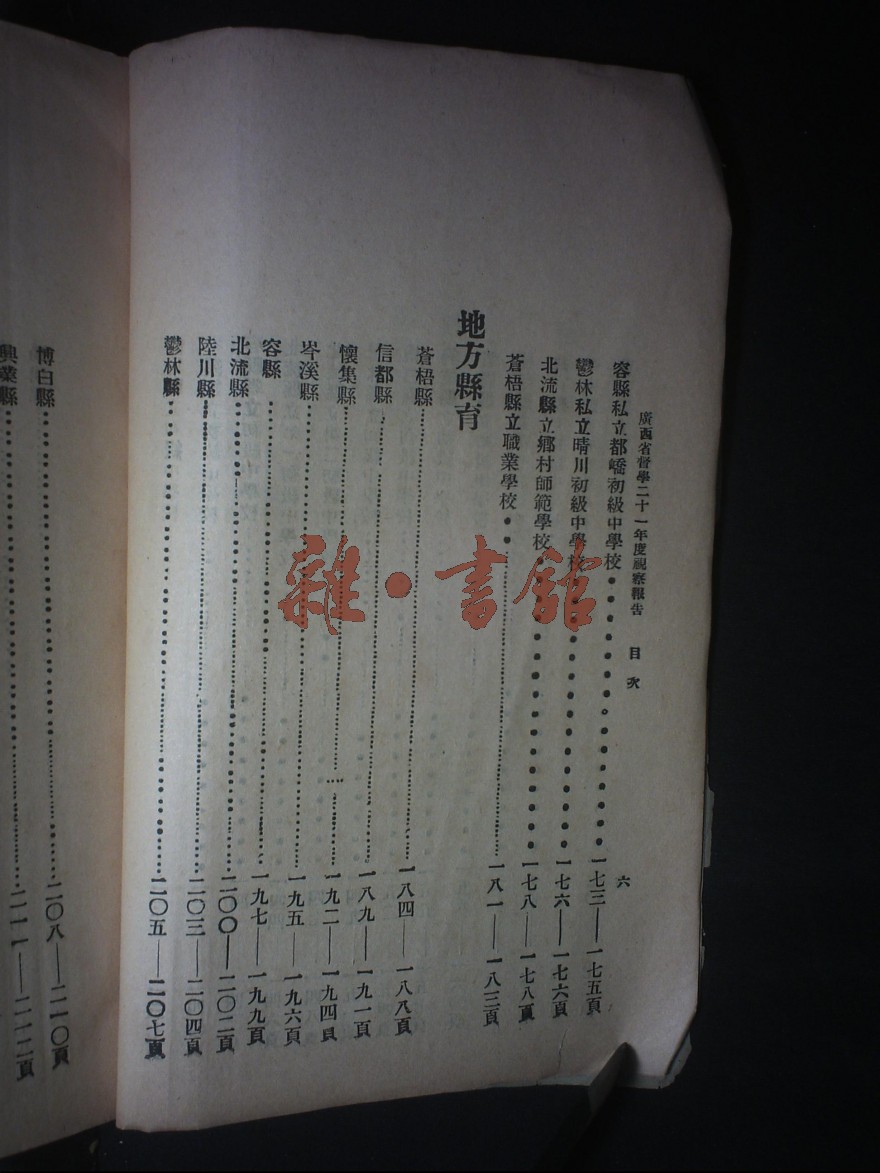 廣西省督學二十一年度視察報告　目次　六
容縣私立都嶠初級中學校………一七三——一七五頁
鬱林私立晴川初級中學校………一七六——一七六頁
北流縣立鄉村師範學校………一七八——一七八頁
蒼梧縣立職業學校………一八一——一八三頁
地方縣育
蒼梧縣………一八四——一八八頁
信都縣………一八九——一九一頁
懷集縣………一九二——一九四頁
岑溪縣………一九五——一九六頁
容縣………一九七——一九九頁
北流縣………二〇〇——二〇二頁
陸川縣………二〇三——二〇四頁
鬱林縣………二〇五——二〇七頁
博白縣………二〇八——二一〇頁
興業縣………二一一——二一二頁
雜·書館